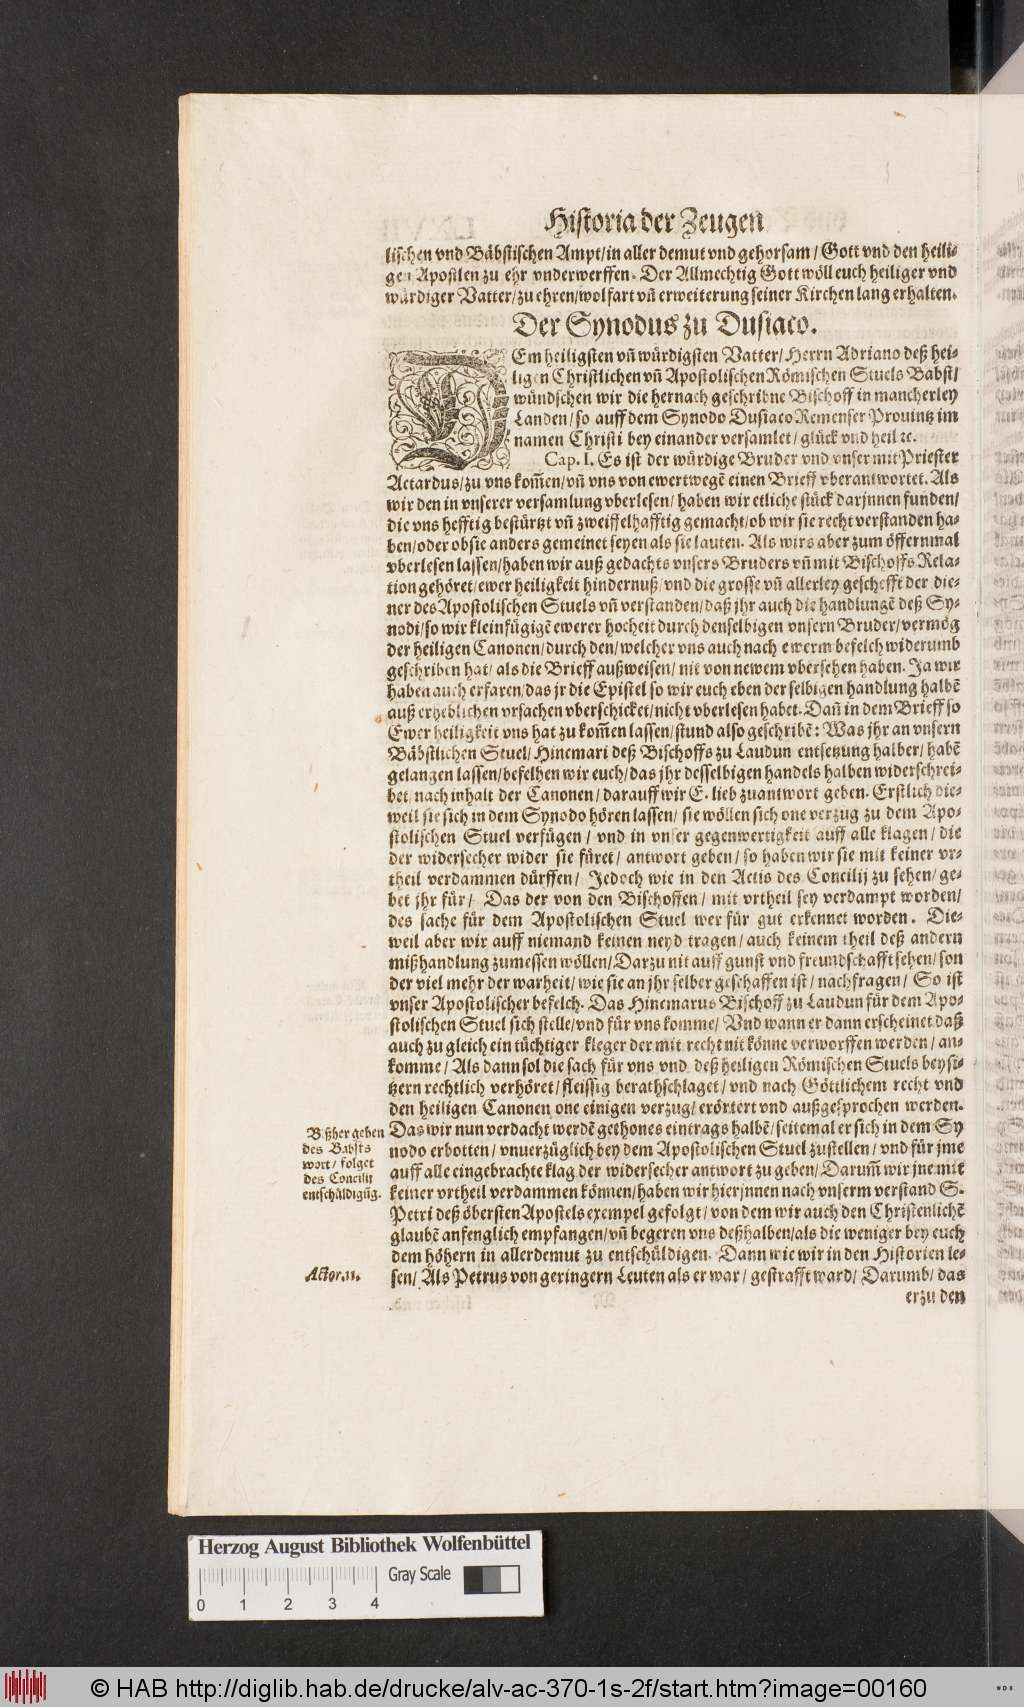 Historia der Zeugen
lischen vnd Bäbstischen Ampt/ in aller demut vnd gehorsam / Gott vnd den heili-
gen Apostlen zu ehr vnderwerffen. Der Allmechtig Gott wöll euch heiliger vnd
würdiger Vatter/ zu ehren/ wolfart vñ erweiterung seiner Kirchen lang erhalten.
Der Synodus zu Dusiaco.
DEm heiligsten vñ würdigsten Vatter/ Herrn Adriano deß hei-
ligen Christlichen vñ Apostolischen Römischen Stuels Babst/
wündschen wir die hernach geschribne Bischoff in mancherley
Landen/ so auff dem Synodo Dusiaco Remenser Prouintz im
namen Christi bey einander versamlet/ glück vnd heil ꝛc.
Cap. I. Es ist der würdige Bruder vnd vnser mit Priester
Actardus/ zu vns kom̃en/ vñ vns von ewertwegẽ einen Brieff vberantwortet. Als
wir den in vnserer versamlung vberlesen/ haben wir etliche stück darjnnen funden/
die vns hefftig bestürtzt vñ zweiffelhafftig gemacht/ ob wir sie recht verstanden ha-
ben/ oder ob sie anders gemeinet seyen als sie lauten. Als wirs aber zum öffernmal
vberlesen lassen/ haben wir auß gedachts vnsers Bruders vñ mit Bischoffs Rela-
tion gehöret/ ewer heiligkeit hindernuß/ vnd die grosse vñ allerley geschefft der die-
ner des Apostolischen Stuels vñ verstanden/ daß jhr auch die handlungẽ deß Sy-
nodi/ so wir kleinfügigẽ ewerer hocheit durch denselbigen vnsern Bruder/ vermög
der heiligen Canonen/ durch den/ welcher vns auch nach ewerm befelch widerumb
geschriben hat/ als die Brieff außweisen/ nit von newem vbersehen haben. Ja wir
haben auch erfaren/ das jr die Epistel so wir euch eben der selbigen handlung halbẽ
auß erheblichen vrsachen vberschicket/ nicht vberlesen habet. Dañ in dem Brieff so
Ewer heiligkeit vns hat zu kom̃en lassen/ stund also geschribẽ: Was jhr an vnsern
Bäbstlichen Stuel/ Hincmari deß Bischoffs zu Laudun entsetzung halber/ habẽ
gelangen lassen/ befelhen wir euch/ das jhr desselbigen handels halben widerschrei-
bet/ nach inhalt der Canonen/ darauff wir E. lieb zuantwort geben. Erstlich die-
weil sie sich in dem Synodo hören lassen/ sie wöllen sich one verzug zu dem Apo-
stolischen Stuel verfügen / vnd in vnser gegenwertigkeit auff alle klagen / die
der widersecher wider sie füret/ antwort geben/ so haben wir sie mit keiner vr-
theil verdammen dürffen/ Jedoch wie in den Actis des Concilij zu sehen/ ge-
bet jhr für/ Das der von den Bischoffen/ mit vrtheil sey verdampt worden/
des sache für dem Apostolischen Stuel wer für gut erkennet worden. Die-
weil aber wir auff niemand keinen neyd tragen/ auch keinem theil deß andern
mißhandlung zumessen wöllen/ Darzu nit auff gunst vnd freundschafft sehen/ son
der viel mehr der warheit/ wie sie an jhr selber geschaffen ist/ nachfragen/ So ist
vnser Apostolischer befelch. Das Hincmarus Bischoff zu Laudun für dem Apo-
stolischen Stuel sich stelle/ vnd für vns komme/ Vnd wann er dann erscheinet daß
auch zu gleich ein tüchtiger kleger der mit recht nit könne verworffen werden/ an-
komme/ Als dann sol die sach für vns vnd deß heiligen Römischen Stuels beysi-
tzern rechtlich verhöret/ fleissig berathschlaget/ vnd nach Göttlichem recht vnd
den heiligen Canonen one einigen verzug/ erörtert vnd außgesprochen werden.
Bißher geben
des Babsts
wort/ folget
des Concilij
entschüldigũg.
Das wir nun verdacht werdẽ gethones eintrags halbẽ/ seitemal er sich in dem Sy
nodo erbotten/ vnuerzüglich bey dem Apostolischen Stuel zustellen/ vnd für jme
auff alle eingebrachte klag der widersecher antwort zu geben/ Darum̃ wir jne mit
keiner vrtheil verdammen können/ haben wir hierjnnen nach vnserm verstand S.
Petri deß öbersten Apostels exempel gefolgt/ von dem wir auch den Christenlichẽ
glaubẽ anfenglich empfangen/ vñ begeren vns deßhalben/ als die weniger bey euch
dem höhern in allerdemut zu entschüldigen. Dann wie wir in den Historien le-
Actor. 11.
sen/ Als Petrus von geringern Leuten als er war/ gestrafft ward/ Darumb/ das
er zu den
Herzog August Bibliothek Wolfenbüttel
Gray Scale
0 1 2 3 4
© HAB http://diglib.hab.de/drucke/alv-ac-370-1s-2f/start.htm?image=00160